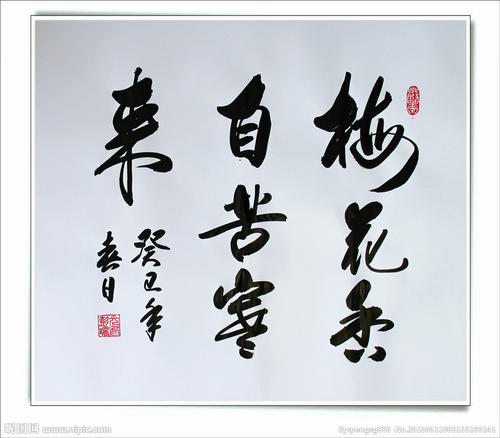 梅花香
自苦寒
来
癸巳年
春日
昵图网 www.nipic.com